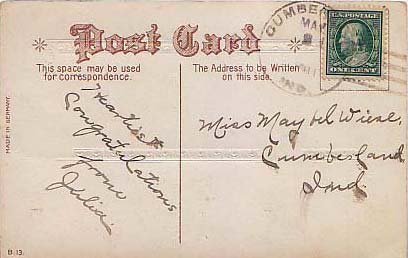 Post Card
This space may be used
for correspondence.
The Address to be Written
on this side.
MADE IN GERMANY.
Heartiest
Congratulations
from
Julia.
CUMBE
MAY
IND.
U.S. POSTAGE
ONE CENT
Miss Maybel Wiese,
Cumberland
Ind.
B 13.